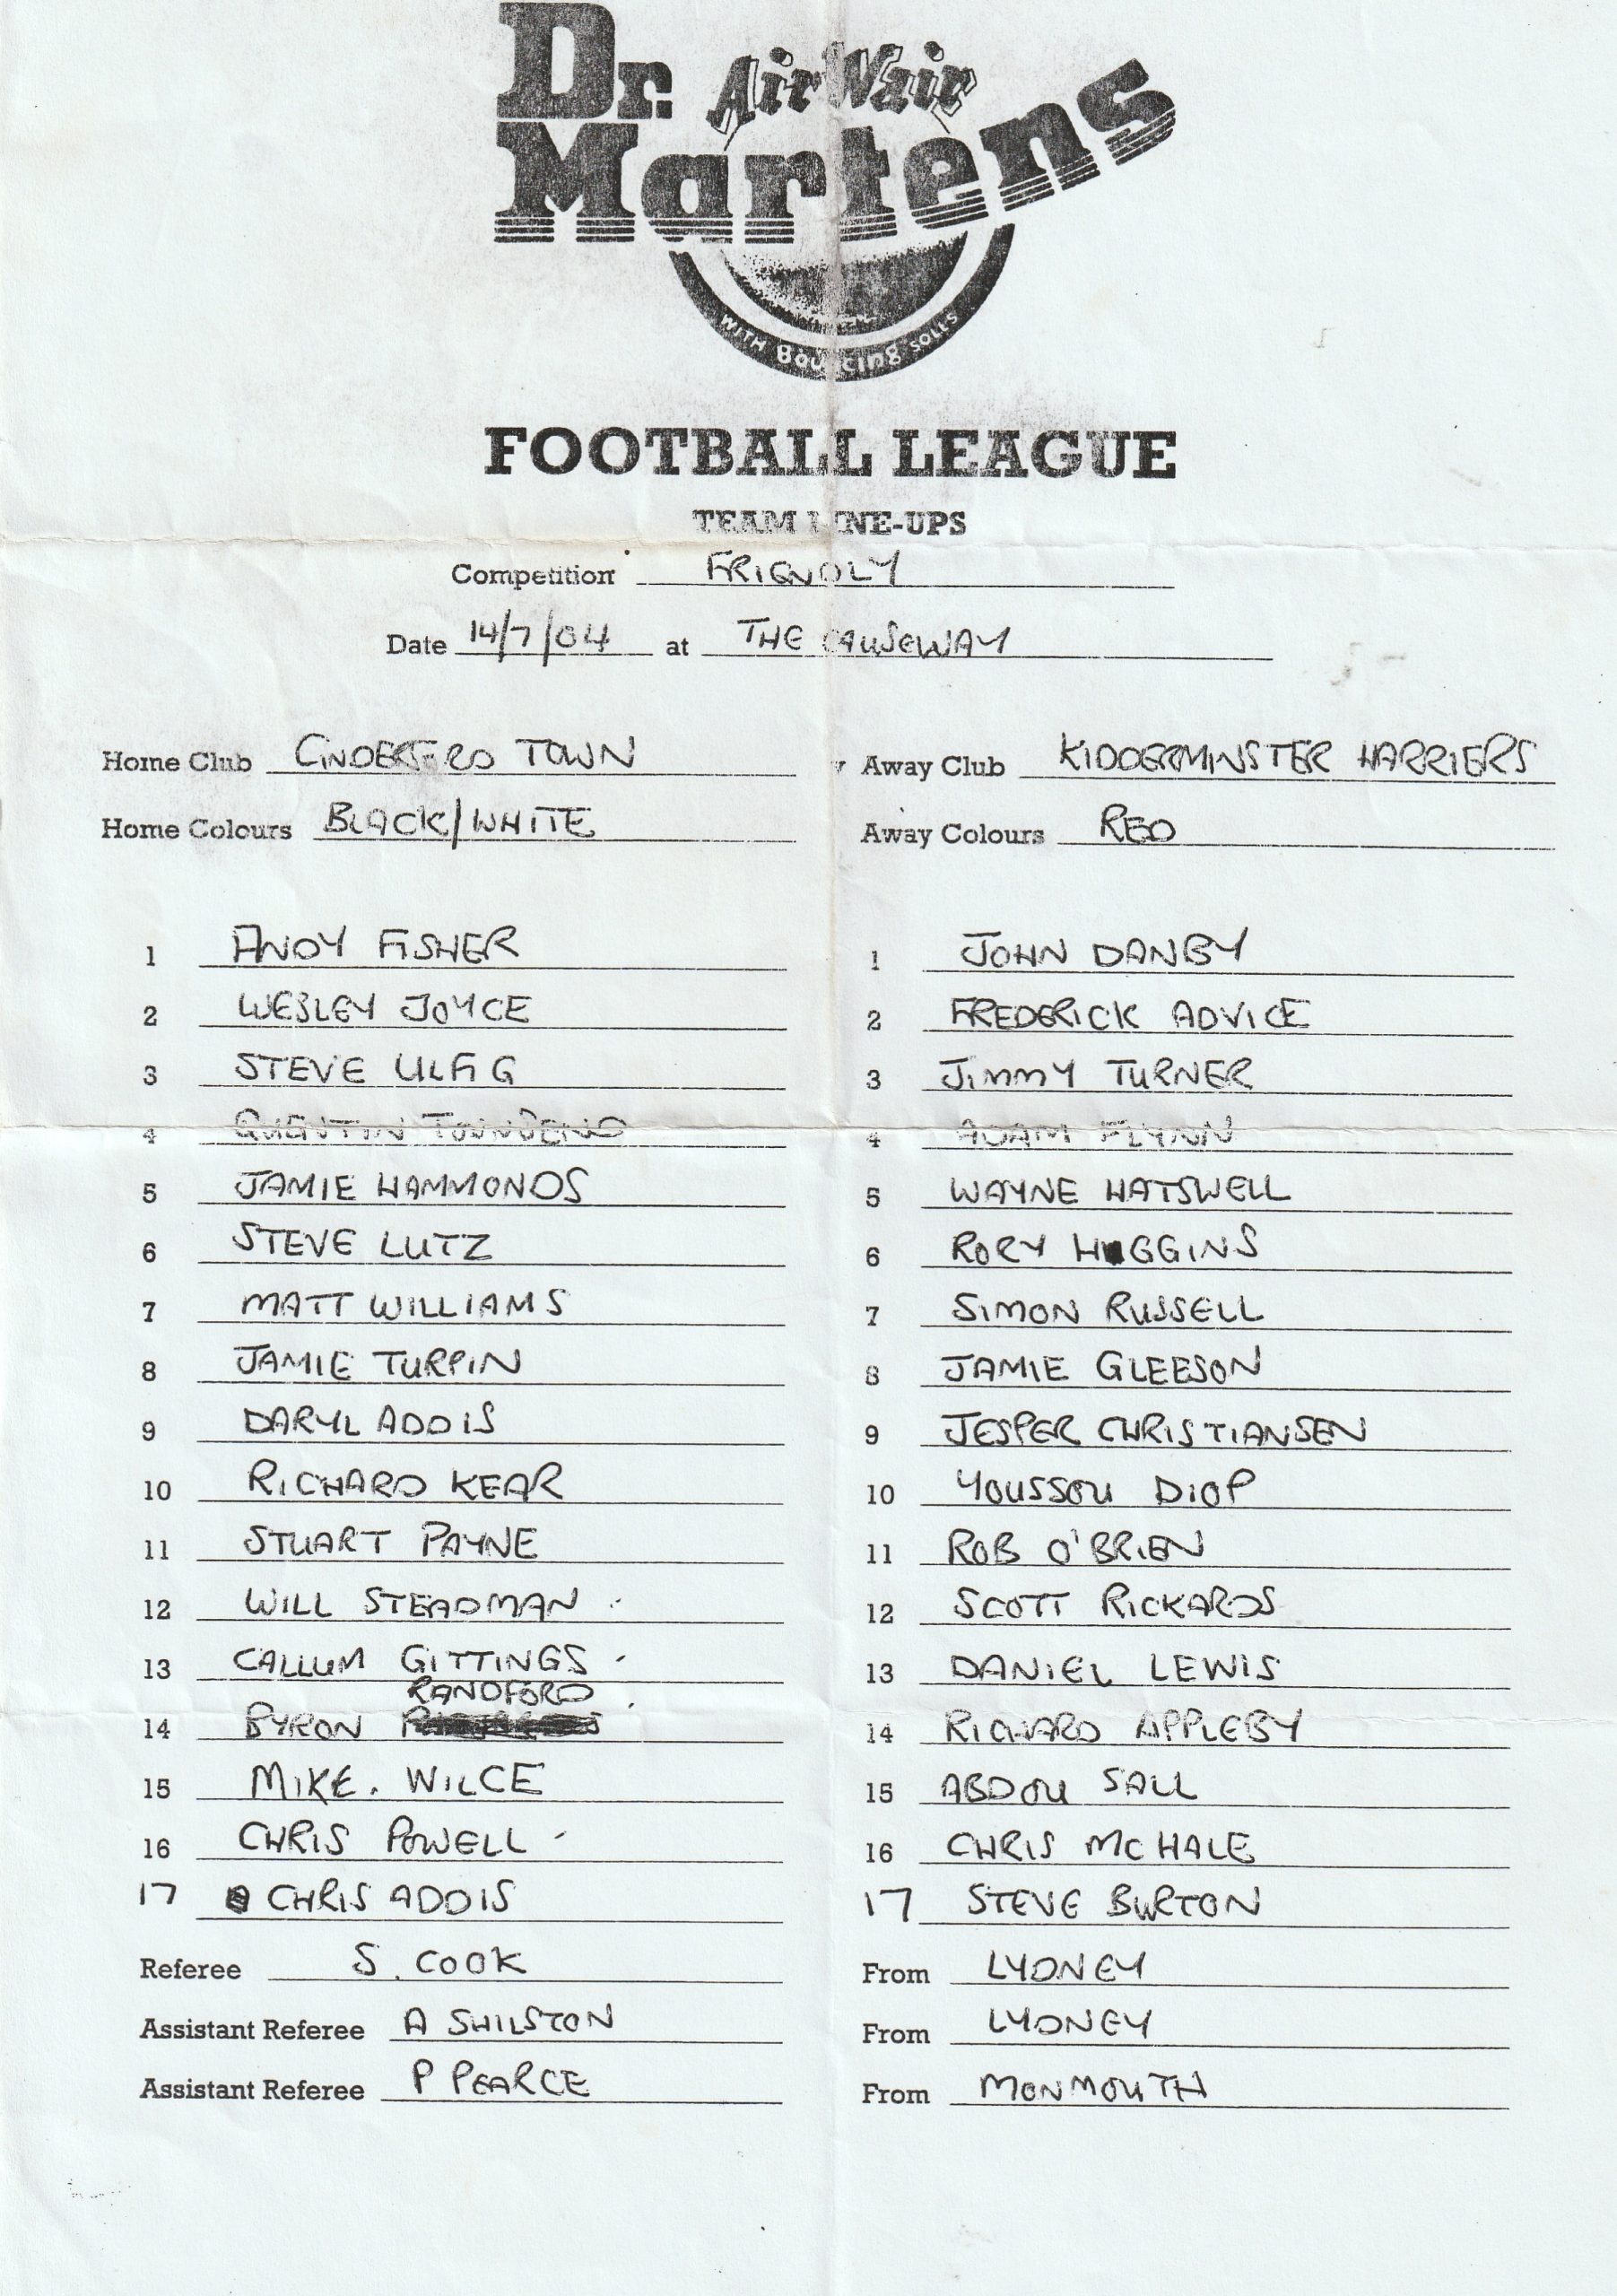 Dr. AirWair
Martens
WITH Bouncing SOLES
FOOTBALL LEAGUE
TEAM LINE-UPS
Competition FRIENDLY
Date 14/7/04 at THE CAUSEWAY
Home Club CINDERFORD TOWN Away Club KIDDERMINSTER HARRIERS
Home Colours BLACK/WHITE Away Colours RED
1 ANDY FISHER 1 JOHN DANBY
2 WESLEY JOYCE 2 FREDERICK ADVICE
3 STEVE ULFIG 3 JIMMY TURNER
4 QUENTIN TOWNSEND 4 ADAM FLYNN
5 JAMIE HAMMONDS 5 WAYNE HATSWELL
6 STEVE LUTZ 6 RORY HUGGINS
7 MATT WILLIAMS 7 SIMON RUSSELL
8 JAMIE TURPIN 8 JAMIE GLEESON
9 DARYL ADDIS 9 JESPER CHRISTIANSEN
10 RICHARD KEAR 10 YOUSSOU DIOP
11 STUART PAYNE 11 ROB O'BRIEN
12 WILL STEADMAN 12 SCOTT RICKARDS
13 CALLUM GITTINGS 13 DANIEL LEWIS
RANDFORD
14 BYRON 14 RICHARD APPLEBY
15 MIKE. WILCE 15 ABDOU SALL
16 CHRIS POWELL 16 CHRIS MCHALE
17 CHRIS ADDIS 17 STEVE BURTON
Referee S. COOK From LYDNEY
Assistant Referee A SHILSTON From LYDNEY
Assistant Referee P PEARCE From MONMOUTH